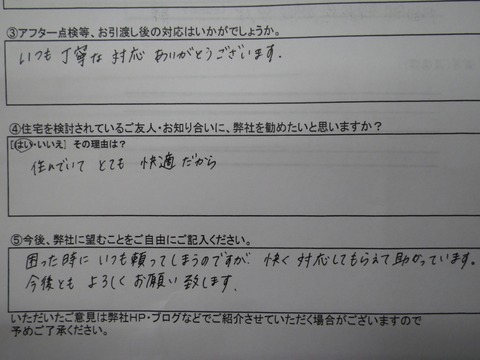 ③アフター点検等、お引渡し後の対応はいかがでしょうか。
いつも丁寧な対応ありがとうございます.
④住宅を検討されているご友人・お知り合いに、弊社を勧めたいと思いますか？
[はい・いいえ] その理由は？
住んでいてとても快適だから
⑤今後、弊社に望むことをご自由にご記入ください。
困った時にいつも頼ってしまうのですが、快く対応してもらえて助かっています。
今後ともよろしくお願い致します.
いただいたご意見は弊社HP・ブログなどでご紹介させていただく場合がございますので
予めご了承ください。